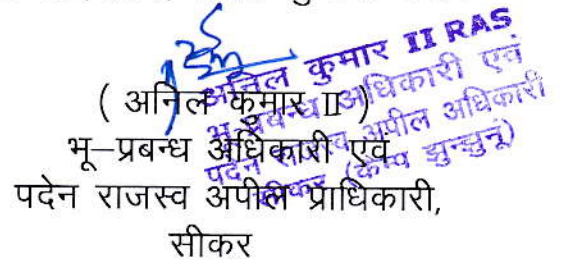 अनिल कुमार II RAS
भू-प्रबन्ध अधिकारी एवं
पदेन राजस्व अपील अधिकारी
सीकर (कैम्प झुन्झुनू)
( अनिल कुमार II )
भू–प्रबन्ध अधिकारी एवं
पदेन राजस्व अपील प्राधिकारी,
सीकर